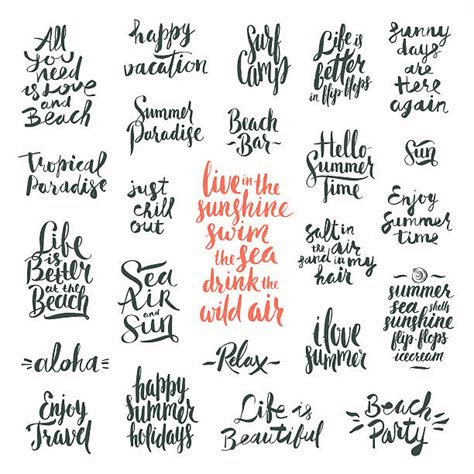 All
you
need
is Love
and
Beach
happy
vacation
Surf
Camp
Life is
better
in flip-flops
sunny
days
are
Here
again
Summer
Paradise
Beach
-Bar-
Hello
Summer
Time
Sun
Tropical
Paradise
just
chill
out
live in the
sunshine
swim
the sea
drink the
wild air
Enjoy
Summer
time
Life
is
Better
at the
Beach
Sea
Air
and
Sun
salt in
the air
sand in my
hair
summer
sea shells
sunshine
flip-flops
icecream
-aloha-
-Relax-
i love
summer
Enjoy
Travel
happy
summer
holidays
Life is
Beautiful
Beach
Party